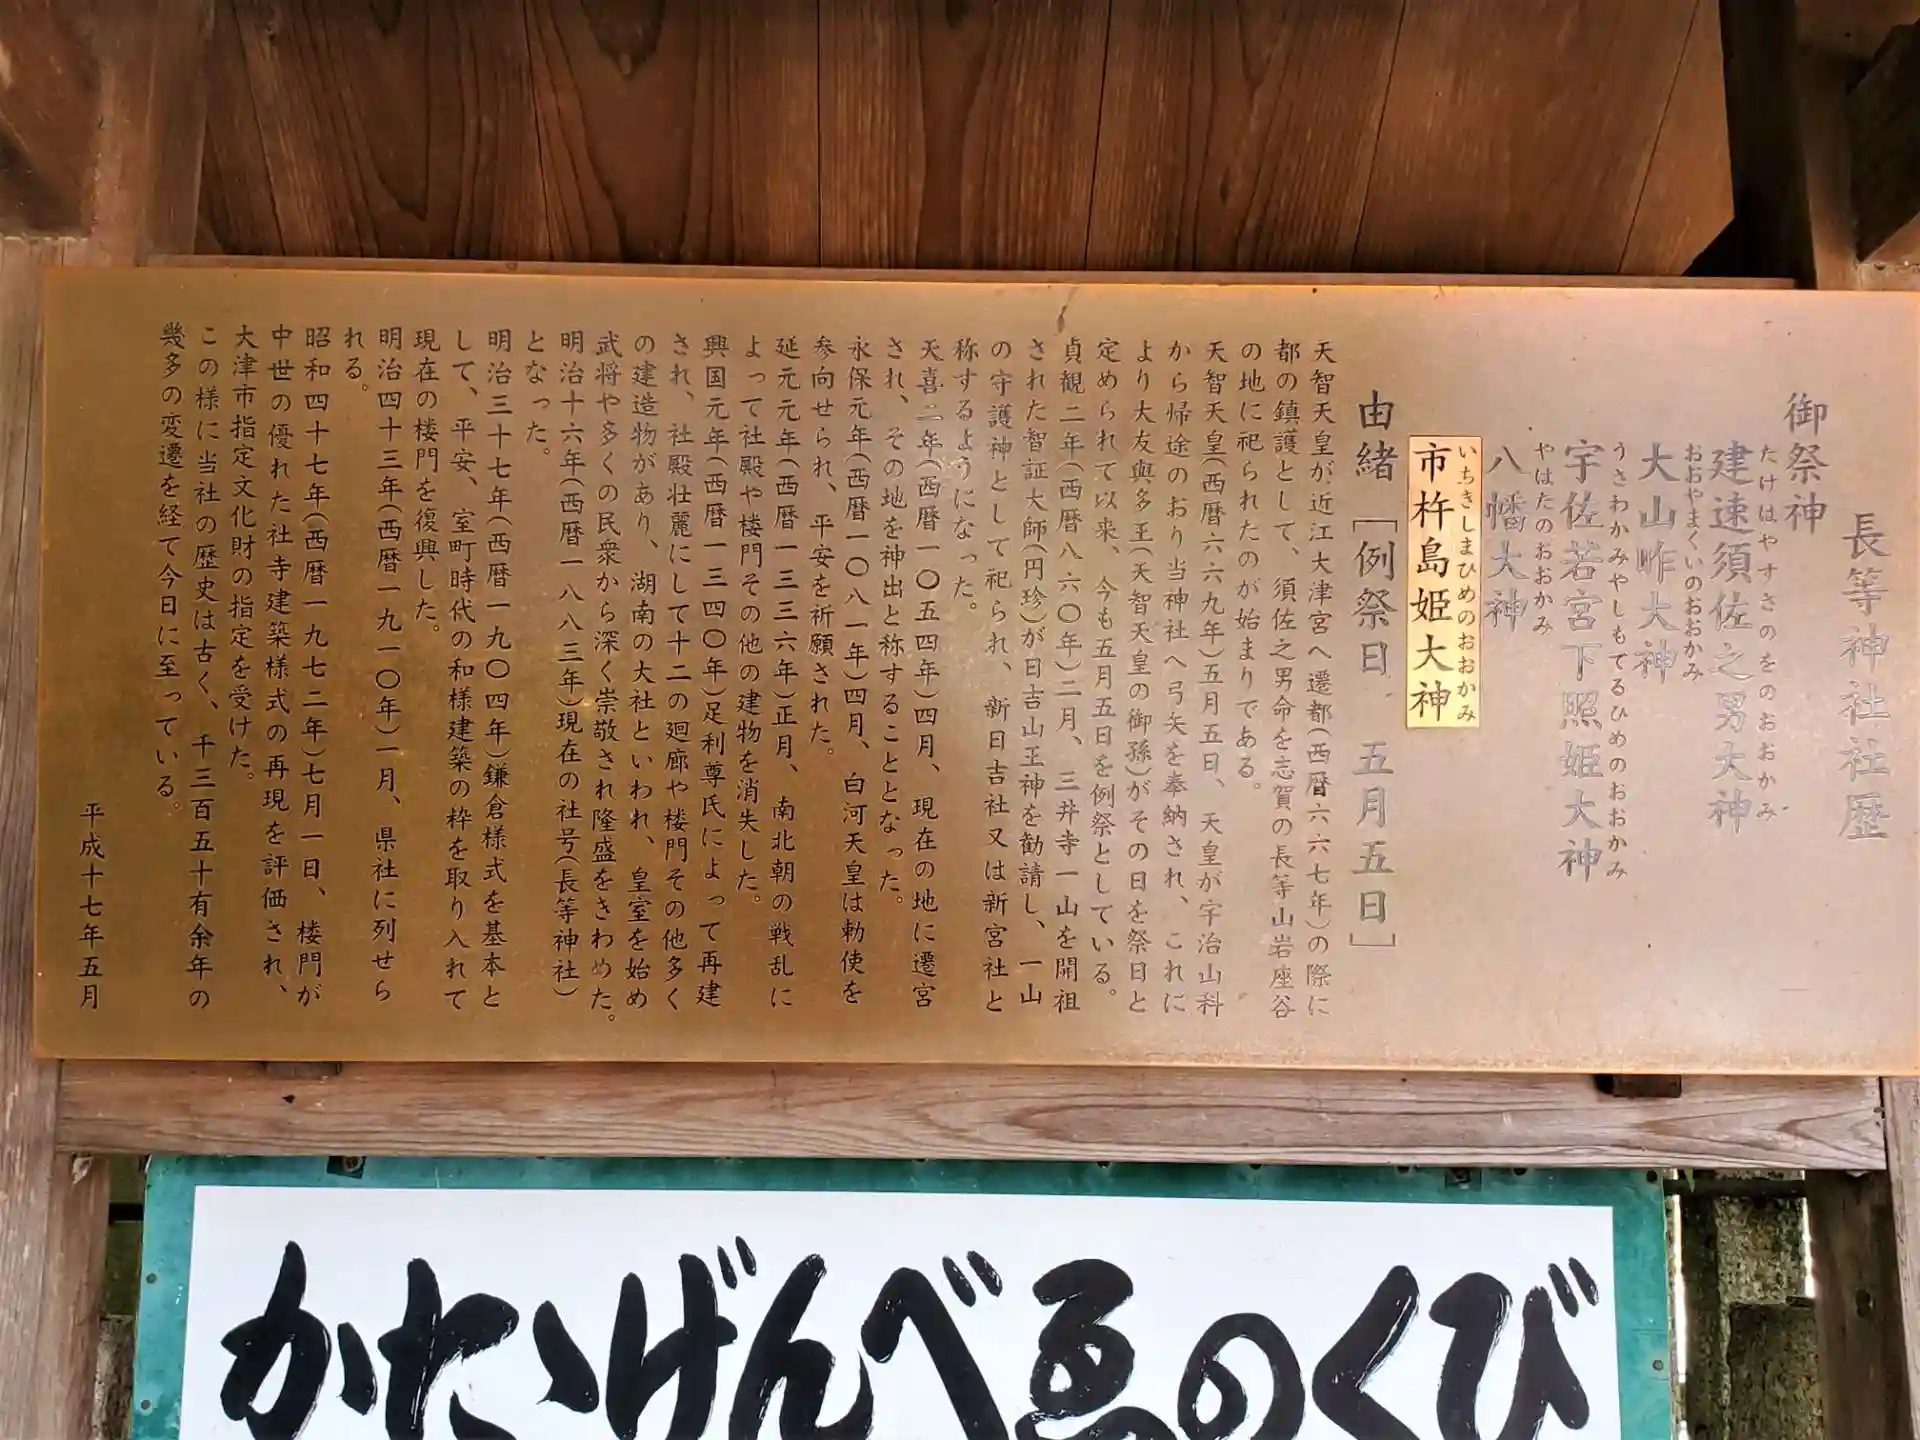 長等神社社歴
御祭神
たけはやすさのをのおおかみ
建速須佐之男大神
おおやまくいのおおかみ
大山咋大神
うさわかみやしもてるひめのおおかみ
宇佐若宮下照姫大神
やはたのおおかみ
八幡大神
いちきしまひめのおおかみ
市杵島姫大神
由緒 [例祭日 五月五日]
天智天皇が近江大津宮へ遷都(西暦六六七年)の際に
都の鎮護として、須佐之男命を志賀の長等山岩座谷
の地に祀られたのが始まりである。
天智天皇(西暦六六九年)五月五日、天皇が宇治山科
から帰途のおり当神社へ弓矢を奉納され、これに
より大友與多王(天智天皇の御孫)がその日を祭日と
定められて以来、今も五月五日を例祭としている。
貞観二年(西暦八六〇年)二月、三井寺一山を開祖
された智証大師(円珍)が日吉山王神を勧請し、一山
の守護神として祀られ、新日吉社又は新宮社と
称するようになった。
天喜二年(西暦一〇五四年)四月、現在の地に遷宮
され、その地を神出と称することとなった。
永保元年(西暦一〇八一年)四月、白河天皇は勅使を
参向せられ、平安を祈願された。
延元元年(西暦一三三六年)正月、南北朝の戦乱に
よって社殿や楼門その他の建物を消失した。
興国元年(西暦一三四〇年)足利尊氏によって再建
され、社殿壮麗にして十二の廻廊や楼門その他多く
の建造物があり、湖南の大社といわれ、皇室を始め
武将や多くの民衆から深く崇敬され隆盛をきわめた。
明治十六年(西暦一八八三年)現在の社号(長等神社)
となった。
明治三十七年(西暦一九〇四年)鎌倉様式を基本と
して、平安、室町時代の和様建築の粋を取り入れて
現在の楼門を復興した。
明治四十三年(西暦一九一〇年)一月、県社に列せら
れる。
昭和四十七年(西暦一九七二年)七月一日、楼門が
中世の優れた社寺建築様式の再現を評価され、
大津市指定文化財の指定を受けた。
この様に当社の歴史は古く、千三百五十有余年の
幾多の変遷を経て今日に至っている。
平成十七年五月
かたゝげんべゑのくび